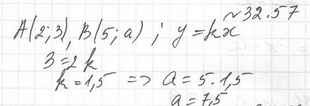 ~32.57
A(2;3), B(5;a) ; y=kx
3=2k
k=1,5 => a=5.1,5
a=7,5